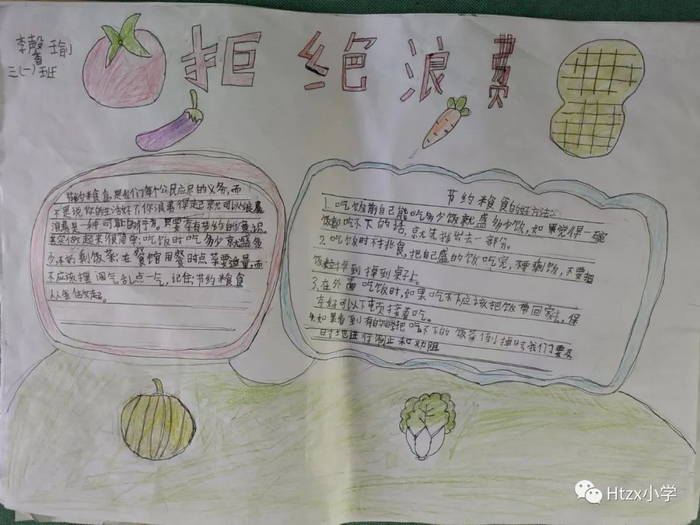 李馨瑜
三(一)班
拒绝浪费
节约粮食,是我们每个公民应尽的义务,而
不是说你的生活好了,你浪费得起就可以浪费
浪费是一种可耻的行为。只要存有节约的意识,
其实做起来很简单:吃饭时吃多少就盛多
少,不剩饭菜;在餐馆用餐时点菜要适量,而
不应该摆阔气,乱点一气,记住:节约粮食
从
节约粮食的好方法:
1.吃饭前自己能吃多少饭就盛多少饭,如果觉得一碗
饭吃不下的话,就先拨出去一部分。
2.吃饭时不挑食,把自己盛的饭吃完,不剩饭,不要把
饭粒掉到桌子上。
3.在外面吃饭时,如果吃不下应该把饭带回家,保
存好可以下顿接着吃。
4.如果看到有的同学把吃不下的饭菜倒掉时,我们要及
时地进行制止和劝阻
Htzx小学